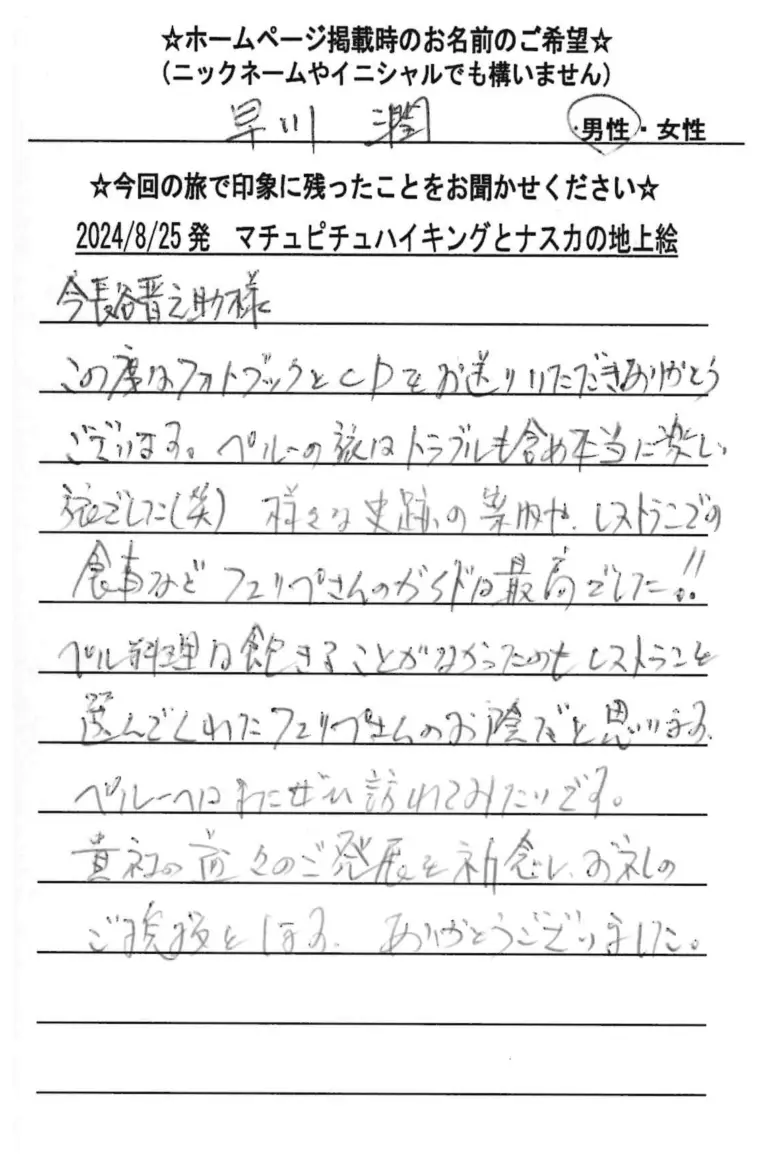 ☆ホームページ掲載時のお名前のご希望☆
(ニックネームやイニシャルでも構いません)
早川 潤 男性・女性
☆今回の旅で印象に残ったことをお聞かせください☆
2024/8/25発 マチュピチュハイキングとナスカの地上絵
今長谷晋之助様
この度はフォトブックとCDをお送りいただきありがとう
ございます。ペルーの旅はトラブルも含め本当に楽しい
旅でした(笑) 様々な史跡の案内や、レストランでの
食事など フェリペさんのガイドは最高でした!!
ペルー料理は飽きることがなかったのもレストランを
選んでくれたフェリペさんのお陰だと思います。
ペルーへはまたぜひ訪れてみたいです。
貴社の益々のご発展を祈念し、お礼の
ご挨拶とします。 ありがとうございました。